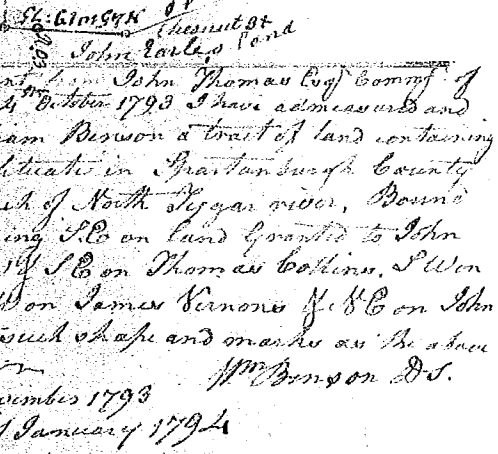 Chesnut 3t
John Earle,s land
John Thomas Esqr Commr of
4th October 1793 I have admeasured and
iam Benson a tract of land containing
Situate in Spartanburgh County
North Tygar river, Bound
ing S.E on land Granted to John
S E on Thomas Collins, S W on
on James Vernons & N E on John
such shape and marks as the above
Wm Benson D S.
vember 1793
January 1794